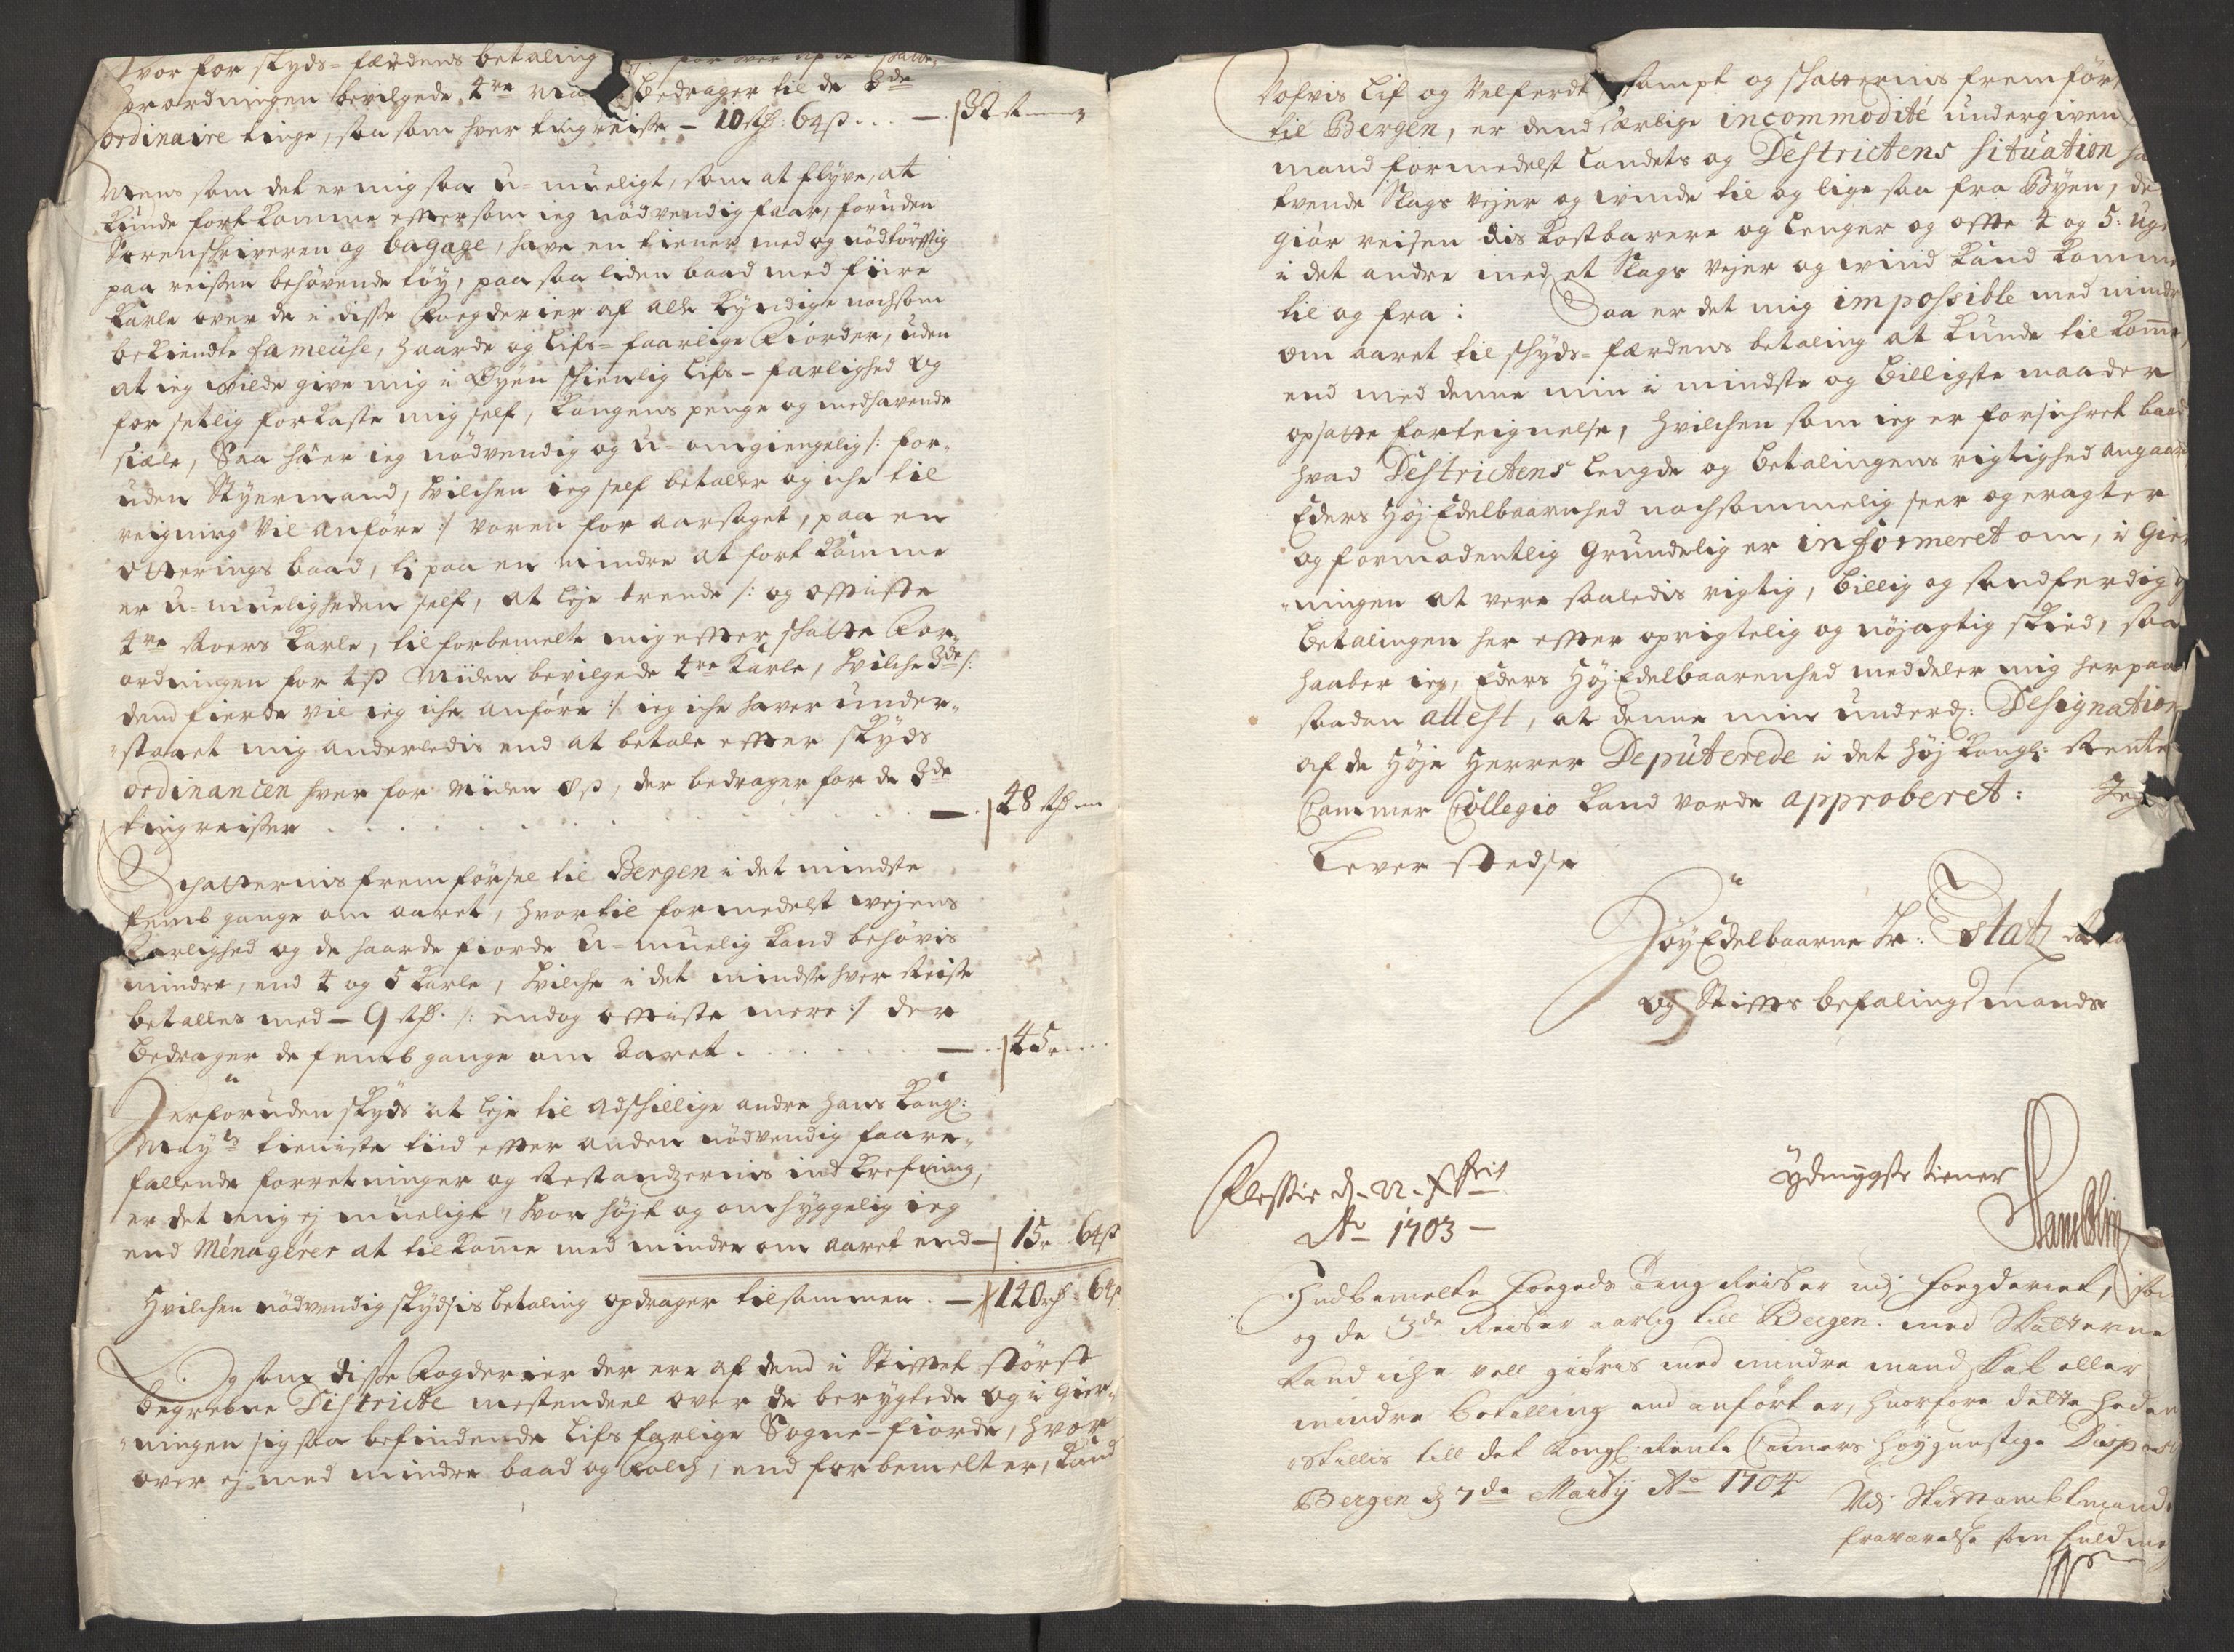 hvor for skyds-færdens betaling
forordningen bevilgede 4re bedrager til de 3de
ordinaire tinge, saa som hver tingreise – 10 rd: 64 ß . . . – 32 rd
Mens som det er mig saa u-mueligt, som at flyve, at
kunde fortkomme effter som ieg nödvendig faar, foruden
Sorenskriveren og bagage, have en tiener med og nödtörfftig
paa reisen behövende töy, paa saa liden baad med fiire
karle over de i disse Fogderier af alle kyndige nochsom
bekiendte fameuse, haarde og lifs-faarlige Fiorder, uden
at ieg wilde give mig i Öyen schienlig lifs-farlighed og
for setlig forkaste mig self, kongens penge og medhavende
siæle, Saa hüer ieg nödvendig og u-omgiengelig /: for-
uden Styermand, hvilchen ieg self betaller og iche til
reigning vil anföre :/ voren for aarsaget, paa en
otterings baad, ti paa en mindre at fortkomme
er u-mueligheden self, at leje trende /: og offtiste
4re Roers karle, til forbemelte mig effter schatte For-
ordningen for 4 ß Miilen bevilgede 4re karle, hvilche 3de /:
dend fierde vil ieg iche anföre :/ ieg iche haver under-
staaet mig anderledis end at betale effter skyds
ordinancen hver for Miilen 8 ß, der bedrager for de 3de
tingreiser . . . . . . . . – 48 rd
Schatternis fremförsel til Bergen i det mindste
femb gange om aaret, hvortil formedelst vejens
Farlighed og de haarde fiorde u-muelig kand behövis
mindre, end 4 og 5 karle, hvilche i det mindste hver Reise
betalles med – 9 rd. /: endog offtiste mere :/ der
bedrager de femb gange om Aaret . . . . – 45
Herforuden skyds at leje til adschillige andre hans kongl:
Mayts tieniste tiid effter anden nödvendig faare-
fallende forretninger og Restandzernis ind krefning,
er det mig ej mueligt, hvor höjt og omhyggelig ieg
end Ménagérer at til komme med mindre om aaret end – 15 64 ß
Hvilchen nödvendig skydsis betaling opdrager tilsammen . – 140 rd 64 ß
Og som disse Fogderier der ere af dend i Stifftet störst
begrebne Districte mestendeel over de berygtede og i gier-
ningen sig saa befindende lifs farlige Sogne-fiorde, hvor
over ej med mindre baad og Folch, end forbemelt er, kand
Vofvis lif og velferdt, sampt og schatternis fremför
til Bergen, er dend særlige incommodité undergiven
mand formedelst Landets og Destrictens situation
tvende Slags vejer og winde til og lige saa fra Byen, de
giör reisen dis kostbarere og lenger og offte 4 og 5: uge
i det andre med et Slags vejer og wind kand komme
til og fra : Saa er det mig impossible med mindre
om aaret til schyds-færdens betaling at kunde til komme,
end med denne min i mindste og billigste maader
opsatte forteignelse, Hvilchen som ieg er forsichret baad
hvad Destrictens lengde og betalingens rigtighed angaar
Eders Höj Edelbaarnhed nochsommelig seer og eragter
og formodentlig grundelig er informeret om, i Gier
ningen at vere saaledis rigtig, billig og sandferdig
betalingen her effter oprigtelig og nöjagtig skied, saa
haaber ieg, Eders Höj Edelbaarenhed meddeler mig herpaa
saadan attest, at denne min underd: Designation
af de Höje Herrer Deputerede i det Höj kongl: Rente
Cammer Collegio kand vorde approberet : Jeg
Lever stedse
Höy Edelbaarne Hr: Estatz
og Stiffts befalingsmands
Ydmygste tiener
d. 22. Xbris
Ao 1703 –
Indbemelte Fogeds Ting Reiser udj Fogderiet,
og de 3de Reiser aarlig till Bergen med Skatterne
kand iche vell giöris med mindre mandskab eller
mindre betalling end anfört er, hvorfore dette heden
stillis till det kongl. Rente Camers höygunstige
Bergen d 7de Martij Ao 1704
Udj Stifftamtmand
fraværelse som fuldme